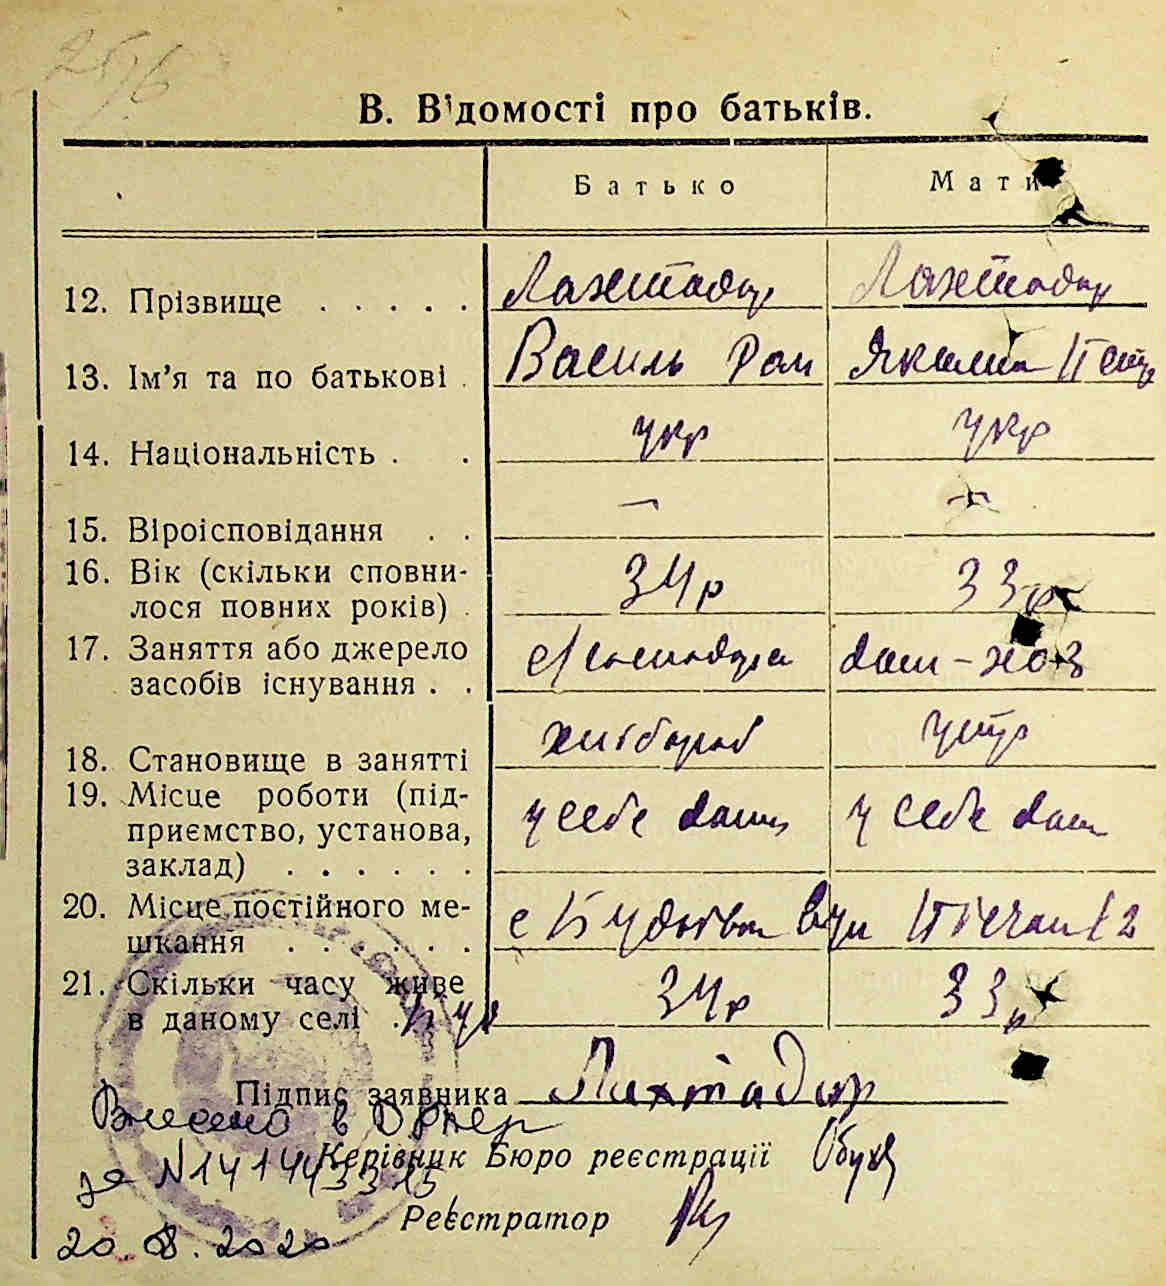 25/6
В. Відомості про батьків.
Батько Мати
12. Прізвище . . . . . Лахтадир Лахтадир
13. Ім'я та по батькові . Василь Ром Якилина Петр
14. Національність . . укр укр
15. Віроісповідання . . — —
16. Вік (скільки сповни-
лося повних років) . 34р 33р
17. Заняття або джерело
засобів існування . . дом-хоз
18. Становище в занятті хлібороб утр
19. Місце роботи (під-
приємство, установа,
заклад) . . . . . . у себе дома у себе дом
20. Місце постійного ме-
шкання . . . . . . с
21. Скільки часу живе
в даному селі . 34р 33р
Підпис заявника Лихтадир
Внесено в
за N 1414433315
Керівник Бюро реєстрації
Реєстратор
20.08.2020